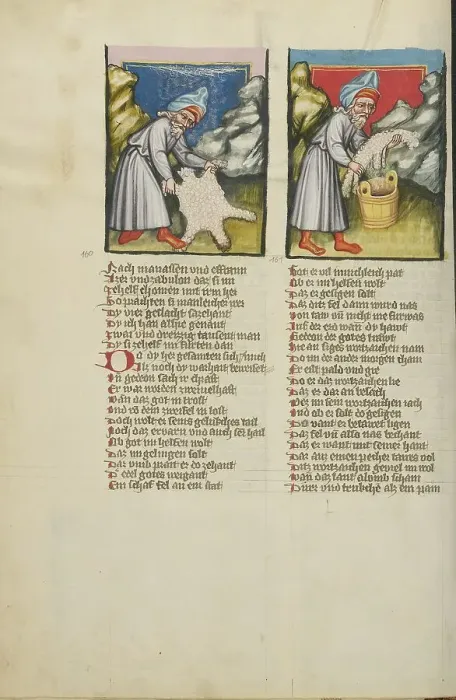 Nach manassen vnd effraim
vnd zabulon daz si im
Zehelf chomen mit irm her
So prachten si manleicher wer
Dy vier geslacht sazehant
Dy ich han alhie genant
Zwai vnd dreizig tausent man
Dy si zehelf im fürten dan
Do dy her gesamten sich
Als noch dy warhait beweiset
In gedeon sach in chraft
Er war worden zweiuelhaft
Wan daz got in trost
Vnd vo dem zweifel in lost
Doch wolt er seins gelükches tail
Noch daz ervarn vnd auch hail
Ob got im helfen wolt
Daz im gelingen solt
Daz vmb prait er do zehant
D edel gotes weigant
Ein schaf fel an ein stat
160
Got er vil innichleich pat
Ob er im helfen wolt
Daz er gesigen solt
Daz ditz fel dann wurd nas
Von taw vn nicht me fürwas
Auf der erd wan dy hawt
Gedeon der gotes trawt
Hie an siges wortzaichen nam
Do im der ander morgen cham
Er eilt pald vnd gie
Do er daz wortzaichen lie
Daz er dar an besech
vn sein wortzaichen iach
Vnd ob er solt do gesigen
Do vant er betawet ligen
Daz fel vil also nas
Daz er want mit seiner hant
Dar auz einen pecher tawes vol
Ditz wortzaichen geviel im wol
Wan daz lant
Dürr vnd als ein
161